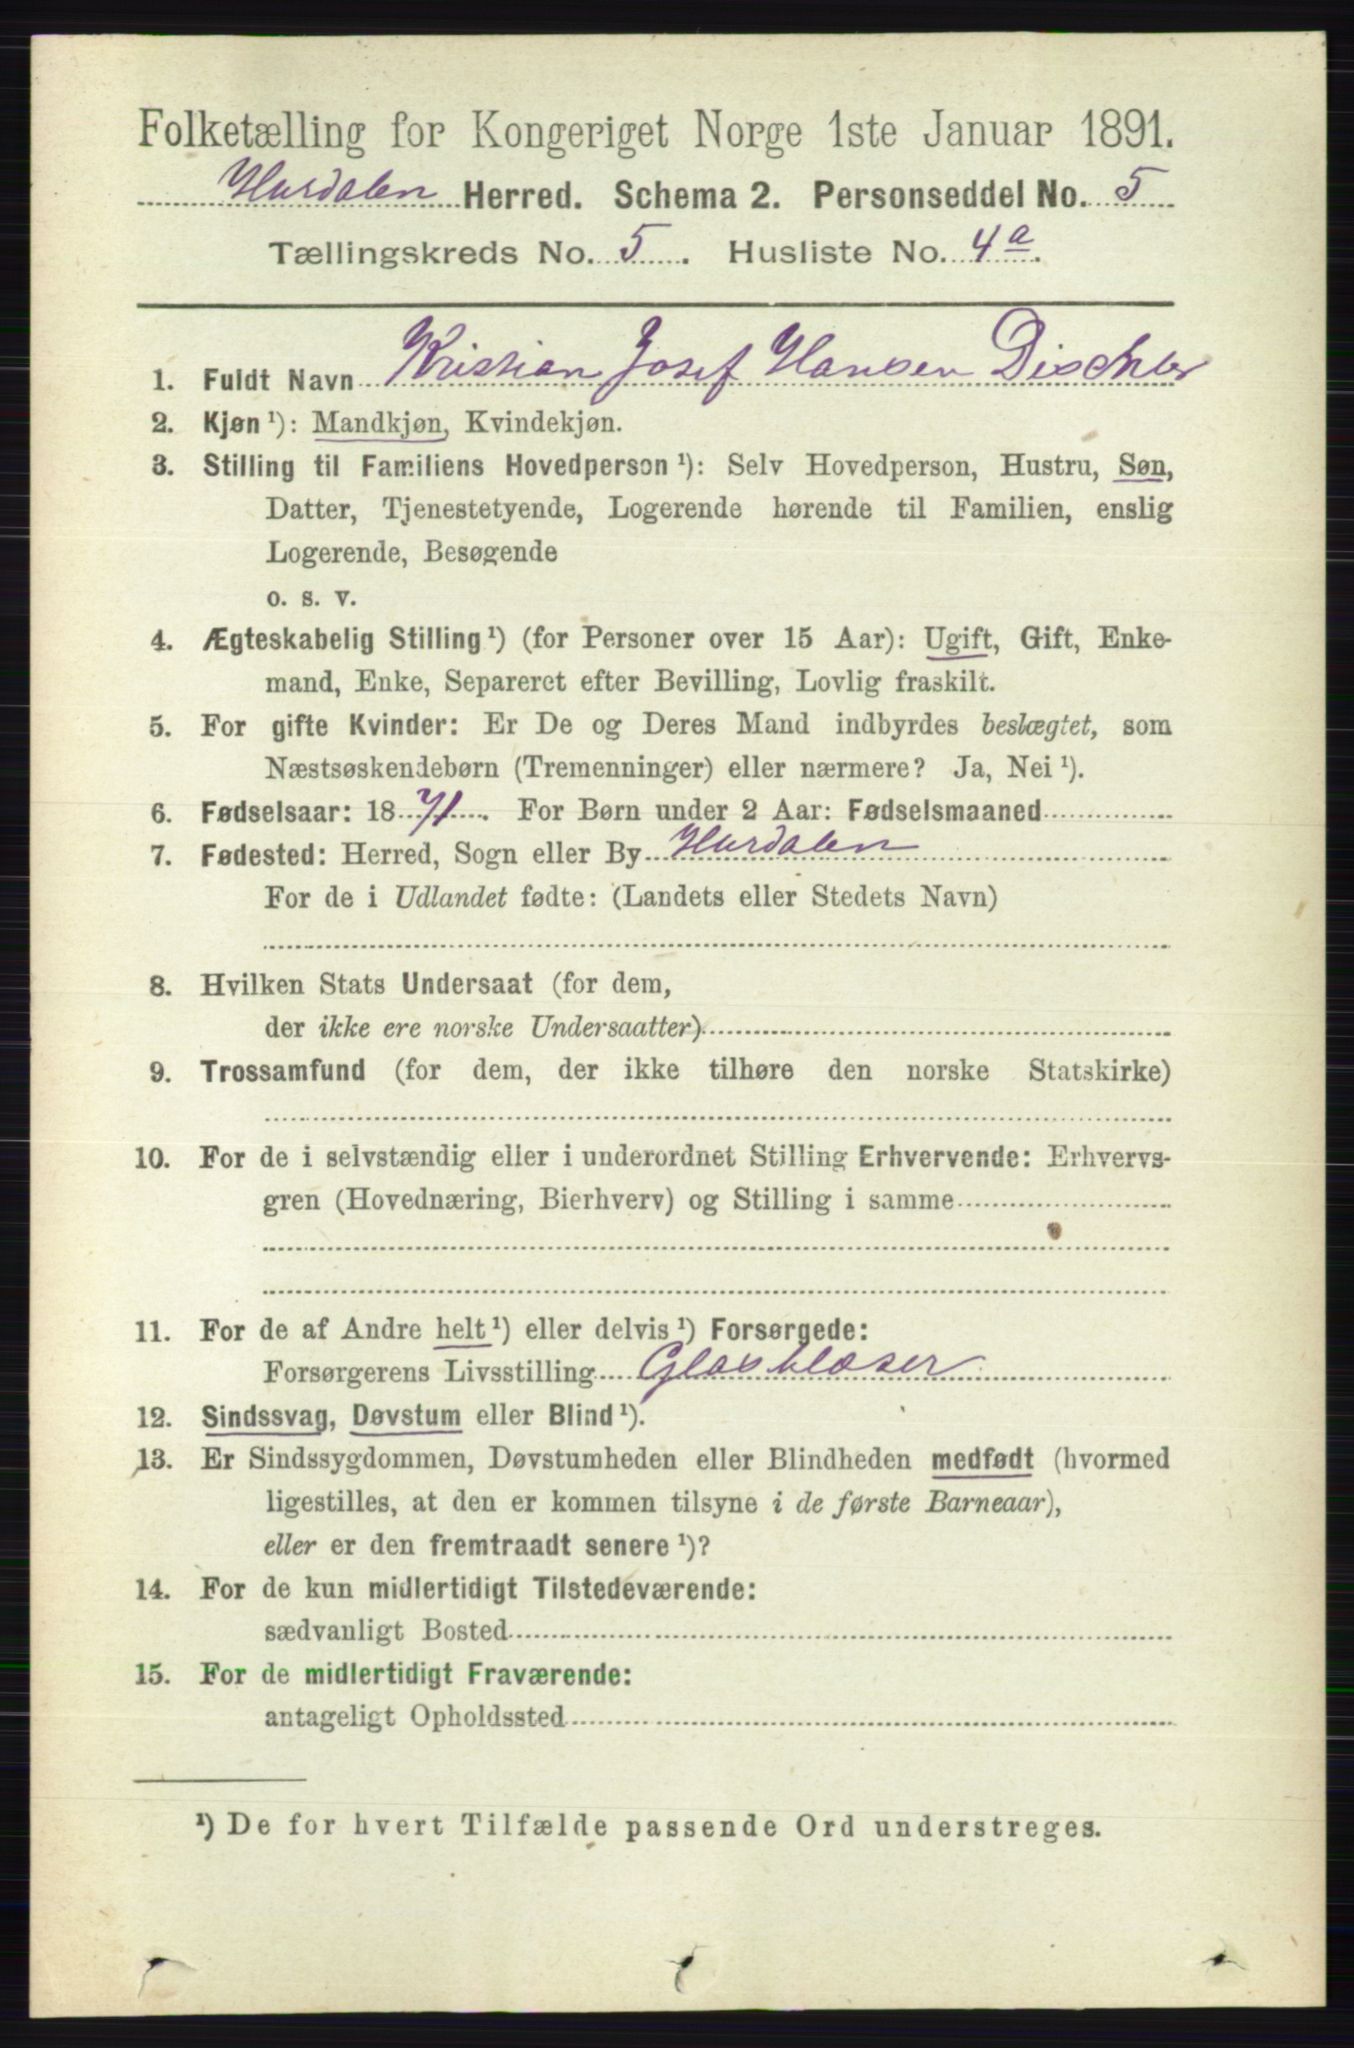 Folketælling for Kongeriget Norge 1ste Januar 1891.
Hurdalen Herred. Schema 2. Personseddel No. 5
Tællingskreds No. 5. Husliste No. 4a.
1. Fuldt Navn Kristian Josef Hansen Dischler
2. Kjøn ¹): Mandkjøn, Kvindekjøn.
3. Stilling til Familiens Hovedperson ¹): Selv Hovedperson, Hustru, Søn,
Datter, Tjenestetyende, Logerende hørende til Familien, enslig
Logerende, Besøgende
o. s. v.
4. Ægteskabelig Stilling ¹) (for Personer over 15 Aar): Ugift, Gift, Enke-
mand, Enke, Separeret efter Bevilling, Lovlig fraskilt.
5. For gifte Kvinder: Er De og Deres Mand indbyrdes beslægtet, som
Næstsøskendebørn (Tremenninger) eller nærmere? Ja, Nei ¹).
6. Fødselsaar: 1871. For Børn under 2 Aar: Fødselsmaaned
7. Fødested: Herred, Sogn eller By Hurdalen
For de i Udlandet fødte: (Landets eller Stedets Navn)
8. Hvilken Stats Undersaat (for dem,
der ikke ere norske Undersaatter)
9. Trossamfund (for dem, der ikke tilhøre den norske Statskirke)
10. For de i selvstændig eller i underordnet Stilling Erhvervende: Erhvervs-
gren (Hovednæring, Bierhverv) og Stilling i samme
11. For de af Andre helt ¹) eller delvis ¹) Forsørgede:
Forsørgerens Livsstilling Glasblæser
12. Sindssvag, Døvstum eller Blind ¹).
13. Er Sindssygdommen, Døvstumheden eller Blindheden medfødt (hvormed
ligestilles, at den er kommen tilsyne i de første Barneaar),
eller er den fremtraadt senere ¹)?
14. For de kun midlertidigt Tilstedeværende:
sædvanligt Bosted
15. For de midlertidigt Fraværende:
antageligt Opholdssted
¹) De for hvert Tilfælde passende Ord understreges.